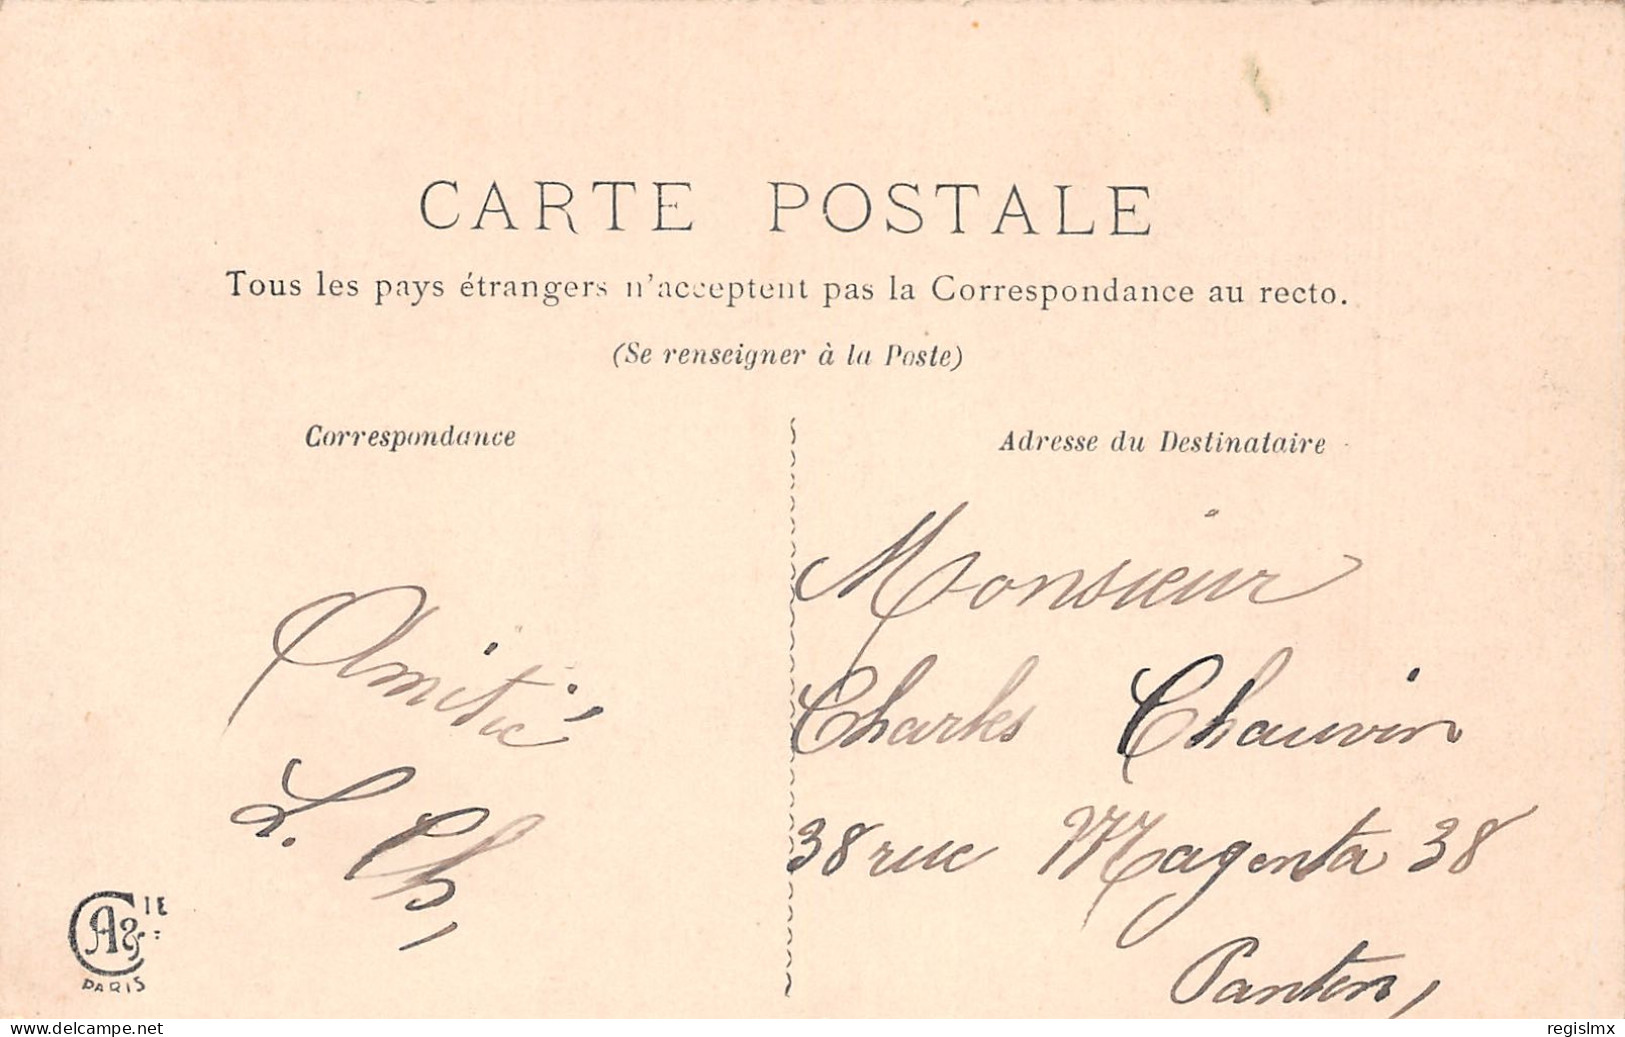 CARTE POSTALE
Tous les pays étrangers n'acceptent pas la Correspondance au recto.
(Se renseigner à la Poste)
Correspondance
Adresse du Destinataire
Amitié
L. Ch,
Monsieur
Charles Chauvin
38 rue Magenta 38
Pantin,
CA & IE
PARIS
www.delcampe.net
regislmx